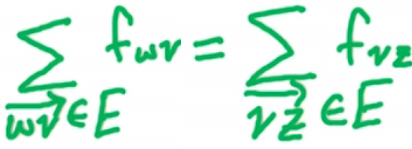 $\sum_{\overrightarrow{wv} \in E} f_{wv} = \sum_{\overrightarrow{vz} \in E} f_{vz}$